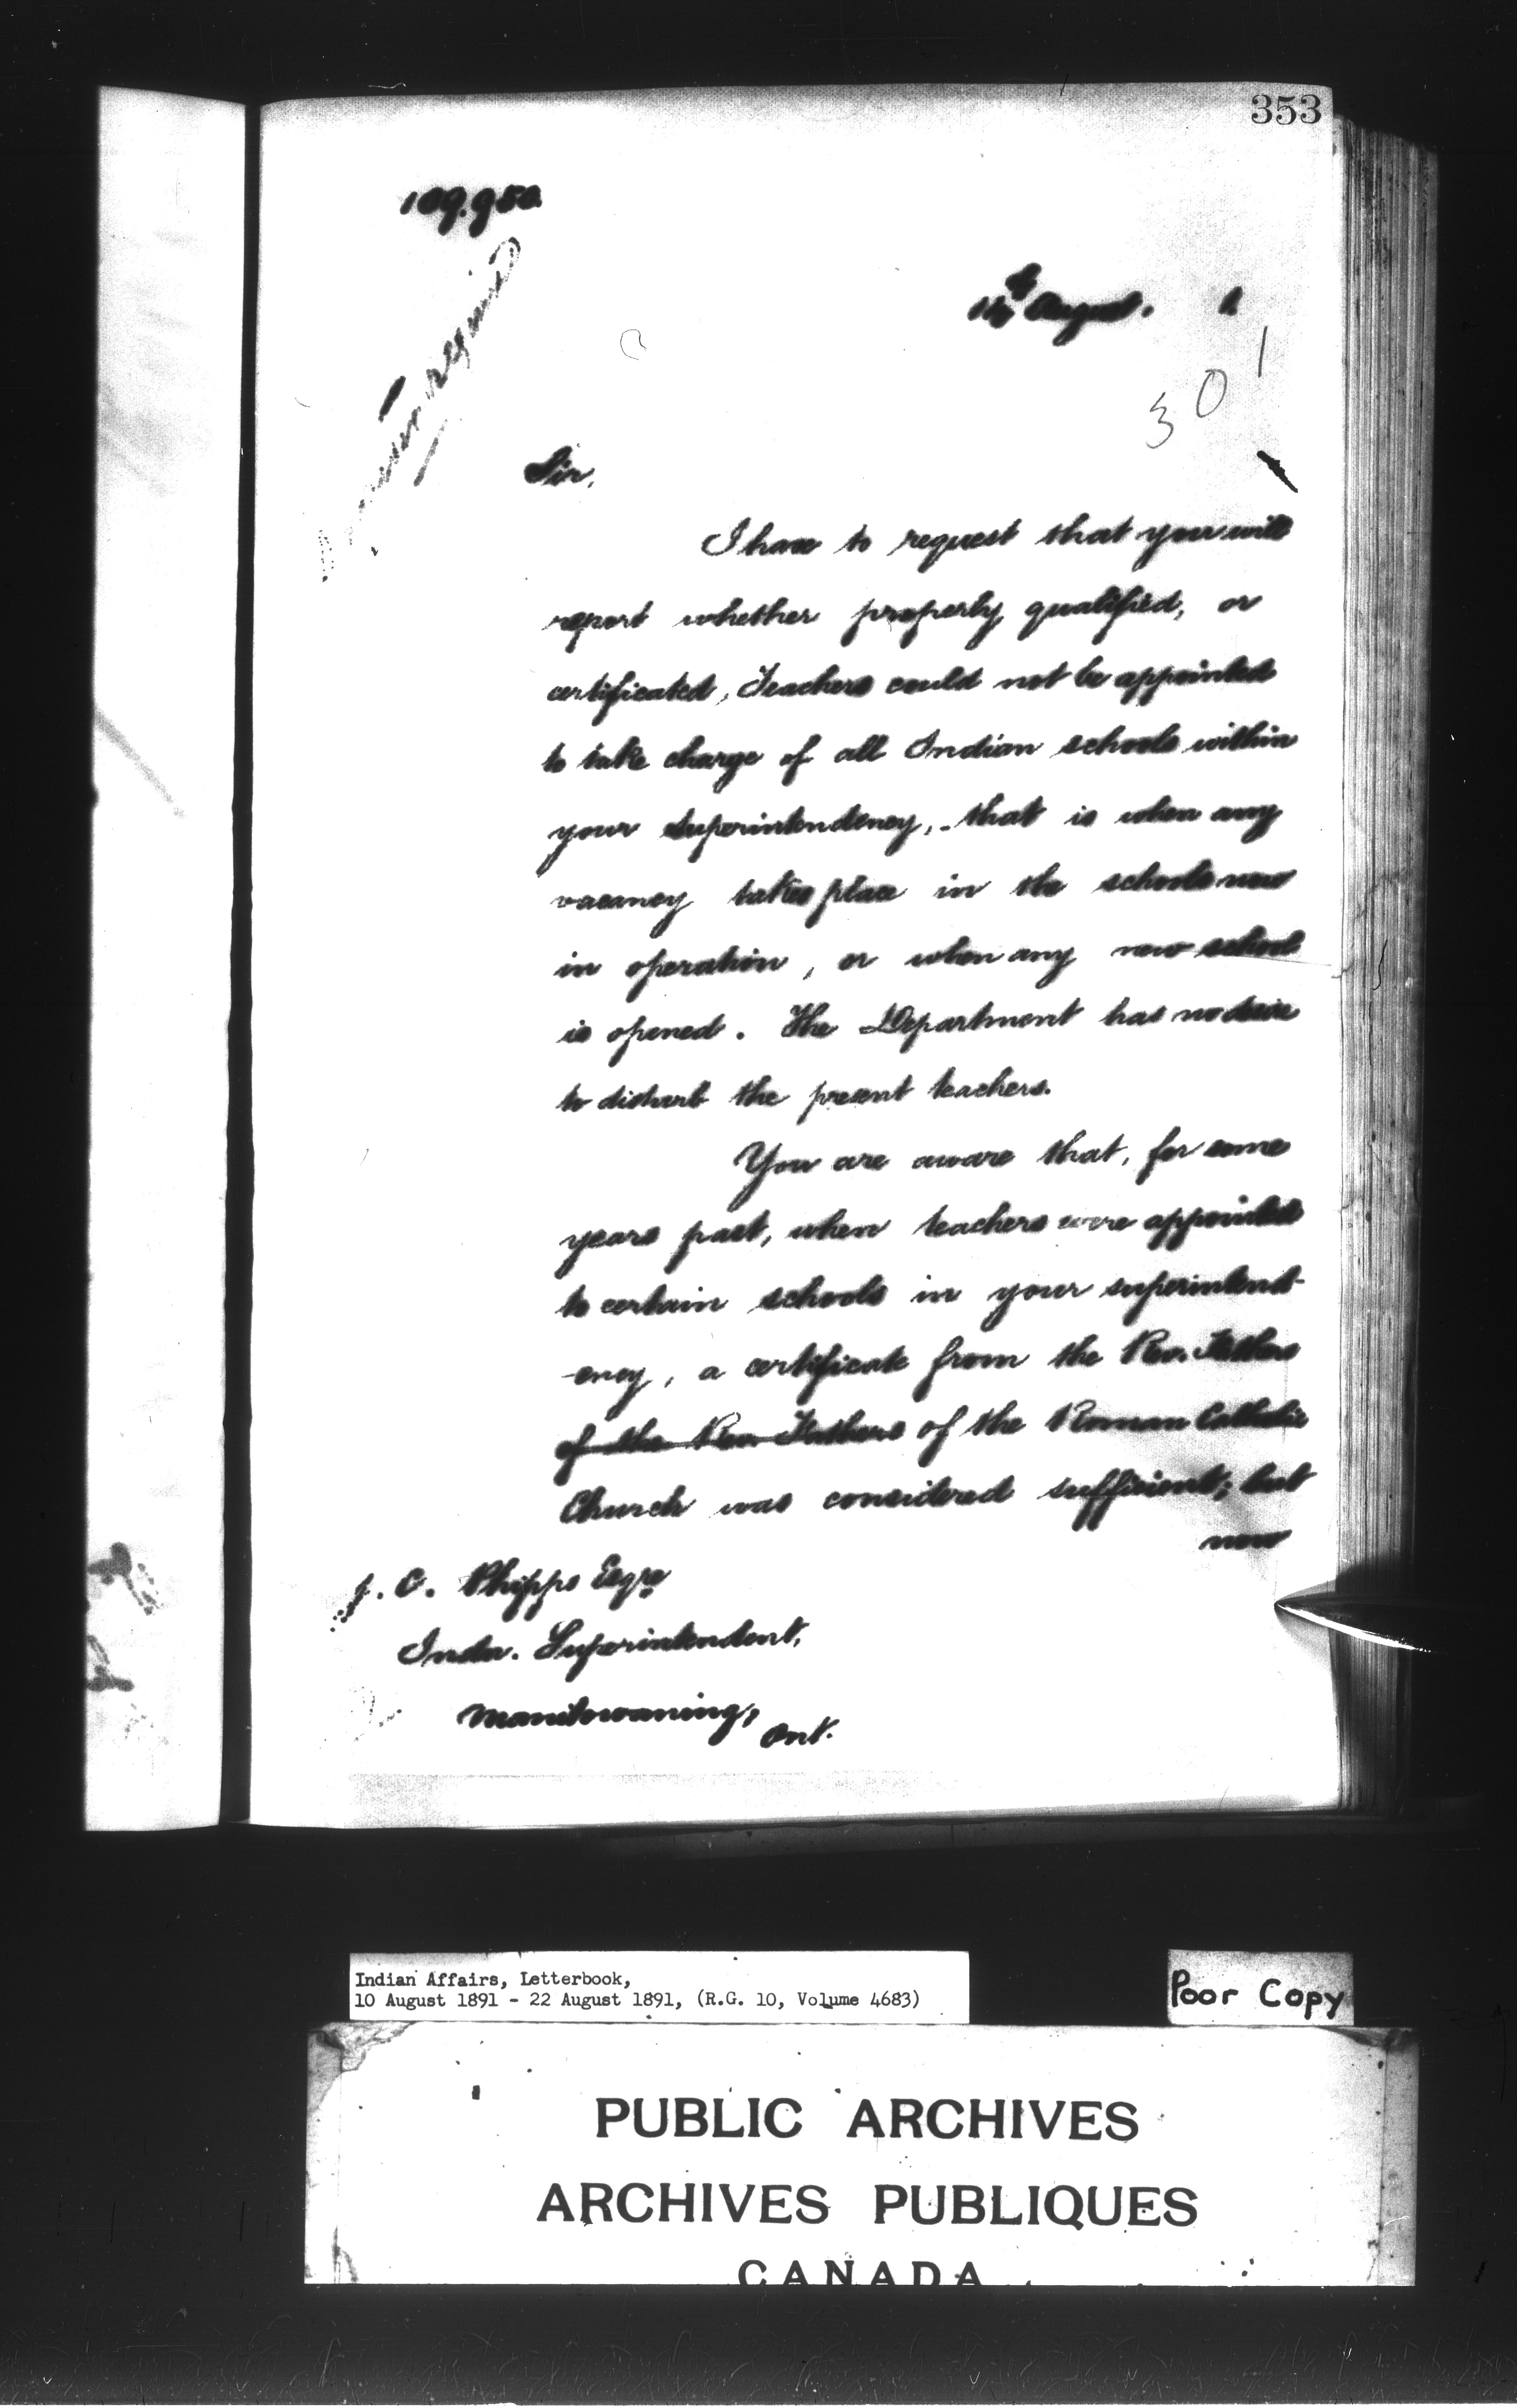 353
109.950.
August. 1
3 0 1
Sir,
I have to request that you will
report whether properly qualified, or
certificated, Teachers could not be appointed
to take charge of all Indian schools within
your Superintendency, - that is when any
vacancy takes place in the schools now
in operation, or when any new school
is opened. The Department has no desire
to disturb the present teachers.
You are aware that, for some
years past, when teachers were appointed
to certain schools in your superintend-
ency, a certificate from the Rev. Fathers
of the Rev Fathers of the Roman Catholic
Church was considered sufficient; but
now
J. C. Phipps Esqre
Indn. Superintendent,
Manitowaning,
Ont.
Indian Affairs, Letterbook,
10 August 1891 - 22 August 1891, (R.G. 10, Volume 4683)
Poor Copy
PUBLIC ARCHIVES
ARCHIVES PUBLIQUES
CANADA